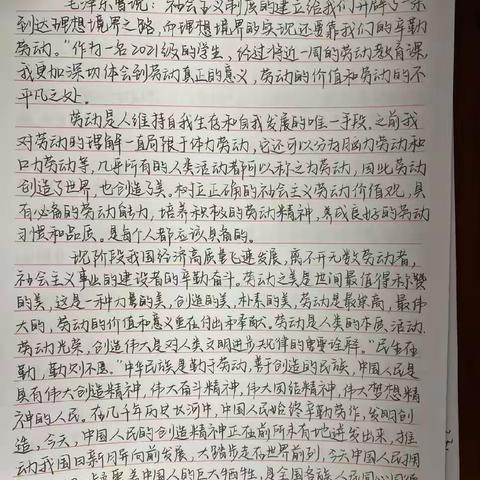 毛泽东曾说：“社会主义制度的建立给我们开辟了一条
到达理想境界之路，而理想境界的实现还要靠我们的辛勤
劳动。”作为一名2021级的学生，经过将近一周的劳动教育课，
我更加深切体会到劳动真正的意义，劳动的价值和劳动的不
平凡之处。
劳动是人维持自我生存和自我发展的唯一手段。之前我
对劳动的理解一直局限于体力劳动，它还可以分为脑力劳动和
口力劳动等，几乎所有的人类活动都可以称之为劳动，因此劳动
创造了世界，也创造了美。树立正确的社会主义劳动价值观，具
有必备的劳动能力，培养积极的劳动精神，养成良好的劳动
习惯和品质。是每个人都应该具备的。
现阶段我国经济高质量飞速发展，离不开无数劳动者，
社会主义事业的建设者的辛勤奋斗。劳动之美是世间最值得称赞
的美，这是一种力量的美，创造的美，朴素的美，劳动是最崇高，最伟
大的，劳动的价值和意义重在付出和奉献。劳动是人类的本质活动，
劳动光荣，创造伟大是对人类文明进步规律的重要诠释。“民生在
勤，勤则不匮。”中华民族是勤于劳动，善于创造的民族，中国人民是
具有伟大创造精神，伟大奋斗精神，伟大团结精神，伟大梦想精
神的人民。在几千年历史长河中，中国人民始终辛勤劳作，发明创
造，今天，中国人民的创造精神正在前所未有地迸发出来，推
动我国日新月异向前发展，大踏步走在世界前列，今天中国人民拥
中国人的巨大牺牲，是全国各族人民同心同德